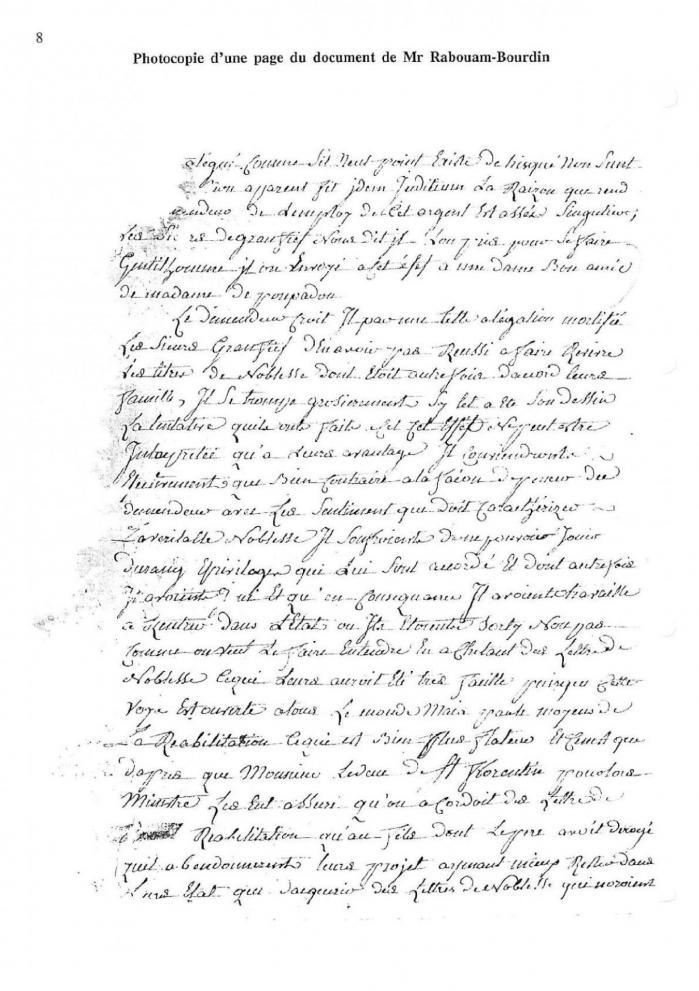 8
Photocopie d'une page du document de Mr Rabouam-Bourdin
alégué Comme Sil Neut point Existé De hisque Non Sunt
apparent fit jdem Juditium La Raizon que rend
de Lemploy de Cet argent Est assés Singuliere;
Les Si res de grandfief Nous dit jl Lon pris pour Se faire
Gentilhomme jl on Envoyé a Cet éfet a une dame Bon amie
de madame De poupadou
Le demendeur Croit Jl par une telle alégation mortifié
Les Sieurs Grandfief Dnavoir pas Reussi a faire Revivre
Les titres de Noblesse Dont Etoit autre fois Leurs
famille, Jl Se trompe grosierement Sy Cet a Eté Son dessin
La tentative quils ont faite a Cet Effet Ne peut estre
Jnterpretée qu'a Leurs avantage Jl
que Bien Contraire a la façon de penser du
demendeur avec Les Sentiment que doit Caractérizer
La veritable Noblesse Jl de ne pouvoir Jouir
du rang Eprivilages qui Lui Sont acordé Et dont autrefois
Et qu'en Consequance Jl avoient travaillé
a Rentrer dans L'Etat ou Jls Etoient Sorty Non pas
Comme on veut Le faire Entendre En achetant des Lettre de
Noblesse Ce qui Leurs auroit Eté tres facille puisque Cette
voye Est ouverte a tous Le monde Mais par le moyens de
La Reabilitation Ce qui est Bien plus flateur Et Ce n'est que
dapres que Monsieur Le duc de St florentin pour lors
Ministre Les Eut assuré qu'on acordoit des Lettre de
Reabilitation qu'au fils dont Le pere avoit dérogé
quil abandonnerent leurs projet aimant mieux Rester dans
Leurs Etat que daquerir des Lettres de Noblesse qui noroient